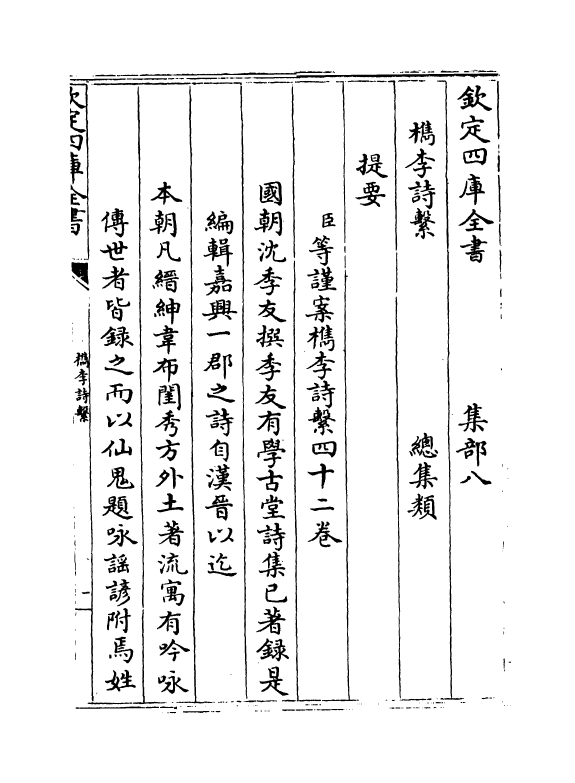 欽定四庫全書 集部八
檇李詩繫 總集類
提要
臣等謹案檇李詩繫四十二卷
國朝沈季友撰季友有學古堂詩集已著録是
編輯嘉興一郡之詩自漢晉以迄
本朝凡縉紳韋布閨秀方外土著流寓有吟咏
傳世者皆録之而以仙鬼題咏謡諺附焉姓
欽定四庫全書
檇李詩繫
一